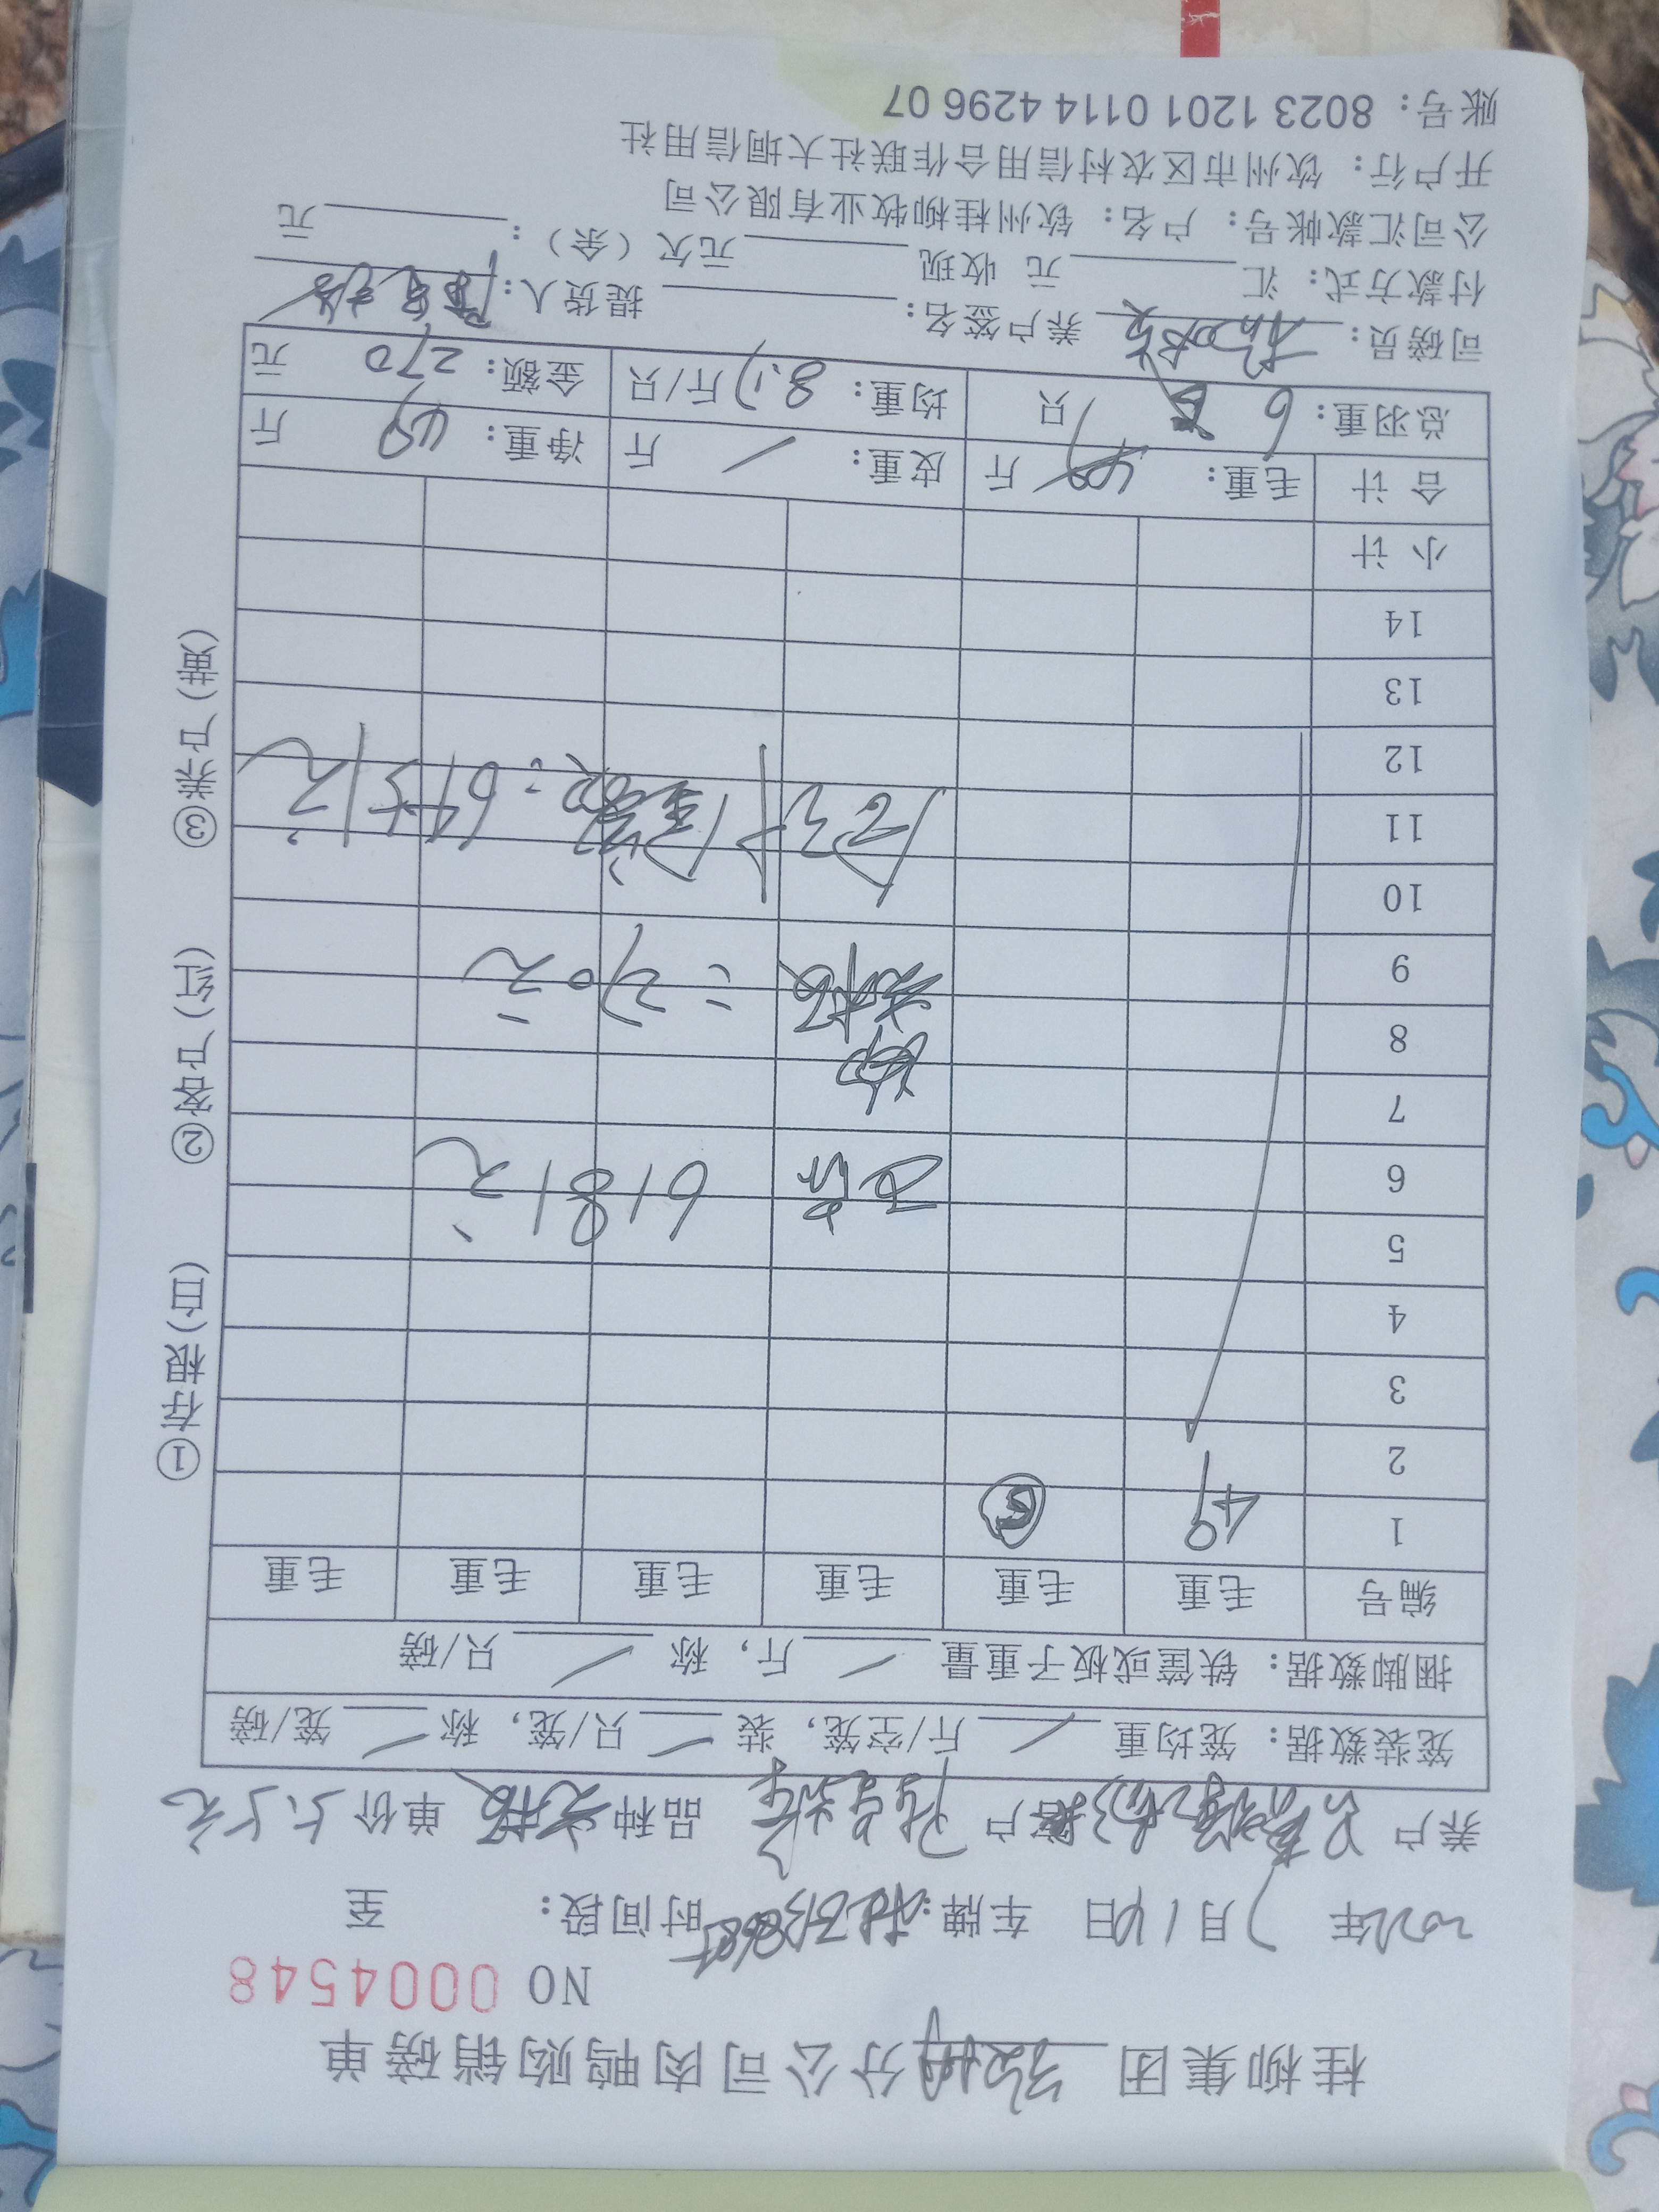 桂柳集团 分公司肉鸭购销磅单
NO 0004548
年 月14日 车牌: 时间段: 至
养户 客户 品种 单价5.5元
笼装数据: 笼均重 / 斤/空笼, 装 / 只/笼, 称 / 笼/磅
捆脚数据: 铁筐或板子重量 / 斤, 称 / 只/磅
编号 毛重 毛重 毛重 毛重 毛重 毛重
1 49
2
3
4
5
6 6181元
7
8
9 =270元
10
11 总计金额: 6451元
12
13
14
小 计
合 计 毛重: 49 斤 皮重: / 斤 净重: 49 斤
总羽重: 6 只 均重: 8.17 斤/只 金额: 270 元
司磅员: 养户签名: 提货人:
付款方式: 汇 元 收现 元欠(余): 元
公司汇款帐号: 户名: 钦州桂柳牧业有限公司
开户行: 钦州市区农村信用合作联社大垌信用社
账号: 8023 1201 0114 4296 07
①存根(白) ②客户(红) ③养户(黄)